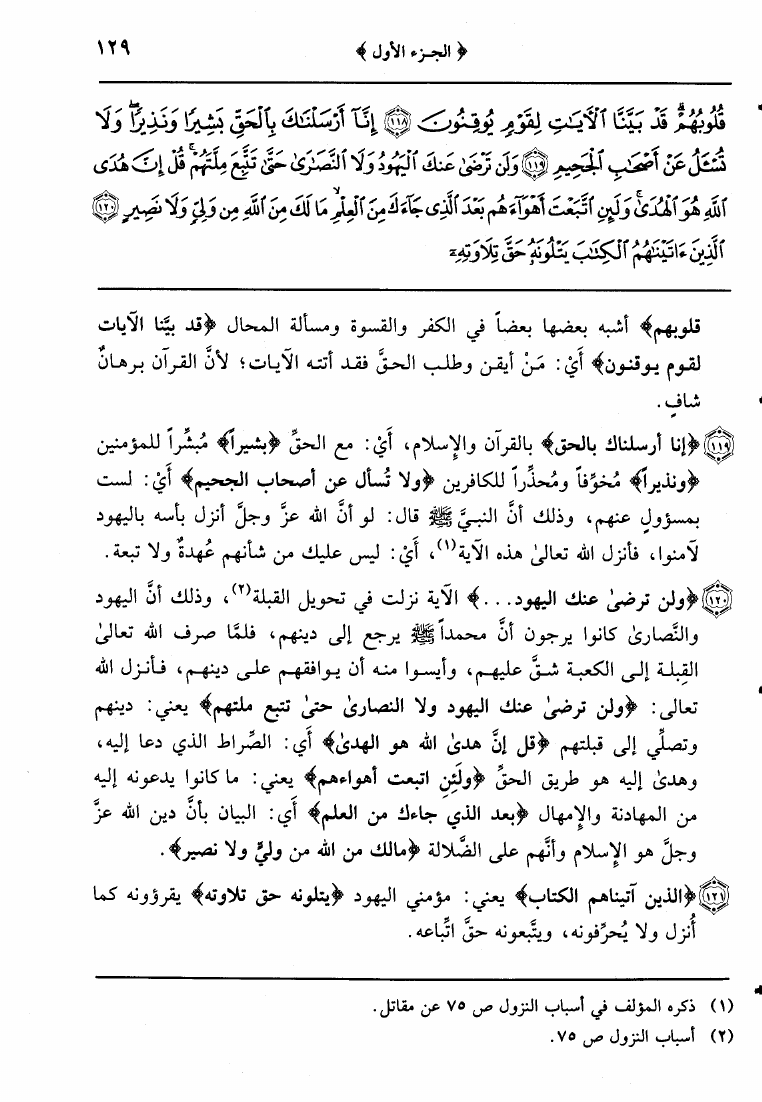 ﴿ الجـزء الأول ﴾ ١٢٩
قُلُوبُهُمْ ۗ قَدْ بَيَّنَّا ٱلْآيَٰتِ لِقَوْمٍ يُوقِنُونَ ١١٨ إِنَّآ أَرْسَلْنَٰكَ بِٱلْحَقِّ بَشِيرًا وَنَذِيرًا ۖ وَلَا
تُسْـَٔلُ عَنْ أَصْحَٰبِ ٱلْجَحِيمِ ١١٩ وَلَن تَرْضَىٰ عَنكَ ٱلْيَهُودُ وَلَا ٱلنَّصَٰرَىٰ حَتَّىٰ تَتَّبِعَ مِلَّتَهُمْ ۗ قُلْ إِنَّ هُدَى
ٱللَّهِ هُوَ ٱلْهُدَىٰ ۗ وَلَئِنِ ٱتَّبَعْتَ أَهْوَآءَهُم بَعْدَ ٱلَّذِى جَآءَكَ مِنَ ٱلْعِلْمِ ۙ مَا لَكَ مِنَ ٱللَّهِ مِن وَلِىٍّ وَلَا نَصِيرٍ ١٢٠
ٱلَّذِينَ ءَاتَيْنَٰهُمُ ٱلْكِتَٰبَ يَتْلُونَهُۥ حَقَّ تِلَاوَتِهِۦٓ
قلوبهم﴾ أشبه بعضها بعضاً في الكفر والقسوة ومسألة المحال ﴿قد بيَّنا الآيات
لقوم يـوقنـون﴾ أَيْ: مَـنْ أيقـن وطلـب الحـقَّ فقـد أتتـه الآيـات؛ لأنَّ القـرآن بـرهـانٌ
شافٍ.
١١٩ ﴿إنا أرسلناك بالحق﴾ بالقرآن والإسلام، أَيْ: مع الحقِّ ﴿بشيراً﴾ مُبشِّراً للمؤمنين
﴿ونذيراً﴾ مُخوِّفاً ومُحذِّراً للكافرين ﴿ولا تُسأل عن أصحاب الجحيم﴾ أَيْ: لست
بمسؤولٍ عنهم، وذلك أنَّ النبـيَّ ﷺ قال: لو أنَّ الله عزَّ وجلَّ أنزل بأسه باليهود
لآمنوا، فأنزل الله تعالىٰ هذه الآية(١)، أَيْ: ليس عليك من شأنهم عُهدةٌ ولا تبعة.
١٢٠ ﴿ولن ترضىٰ عنك اليهود...﴾ الآية نزلت في تحويل القبلة(٢)، وذلك أنَّ اليهود
والنَّصارىٰ كانوا يرجون أنَّ محمداً ﷺ يرجع إلى دينهم، فلمَّا صرف الله تعالىٰ
القِبلـة إلـى الكعبـة شـقَّ عليهـم، وأيسـوا منـه أن يـوافقهـم علـى دينهـم، فـأنـزل الله
تعالى: ﴿ولن ترضىٰ عنك اليهود ولا النصارىٰ حتىٰ تتبع ملتهم﴾ يعني: دينهم
وتصلِّي إلى قبلتهم ﴿قل إنَّ هدىٰ الله هو الهدىٰ﴾ أَي: الصِّراط الذي دعا إليه،
وهدىٰ إليه هو طريق الحقِّ ﴿ولَئِنِ اتبعت أهواءهم﴾ يعني: ما كانوا يدعونه إليه
من المهادنة والإِمهال ﴿بعد الذي جاءك من العلم﴾ أَي: البيان بأنَّ دين الله عزَّ
وجلَّ هو الإسلام وأنَّهم على الضَّلالة ﴿مالك من الله من وليٍّ ولا نصير﴾.
١٢١ ﴿الذين آتيناهم الكتاب﴾ يعني: مؤمني اليهود ﴿يتلونه حق تلاوته﴾ يقرؤونه كما
أُنزل ولا يُحرِّفونه، ويتَّبعونه حقَّ اتِّباعه.
(١) ذكره المؤلف في أسباب النزول ص ٧٥ عن مقاتل.
(٢) أسباب النزول ص ٧٥.